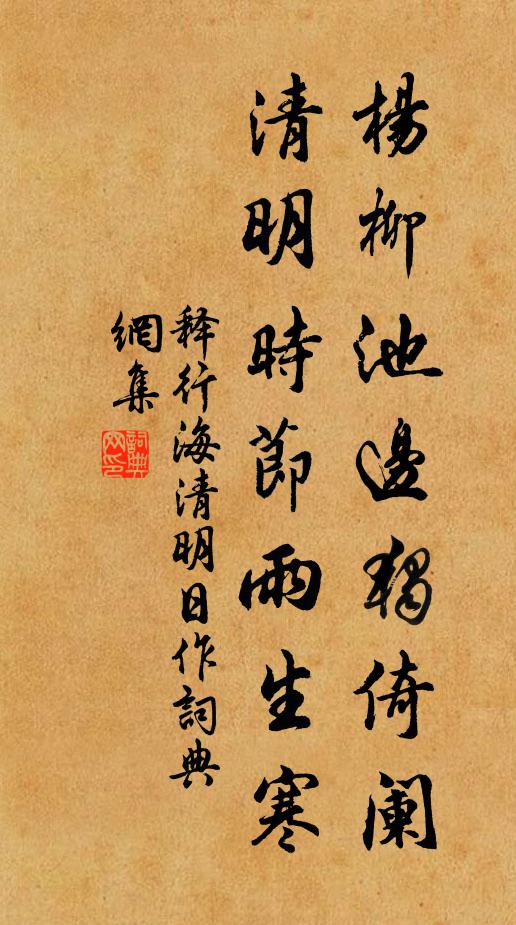 楊柳池邊獨倚闌
清明時節雨生寒
释行海清明日作詞典
網集
詞典
网印